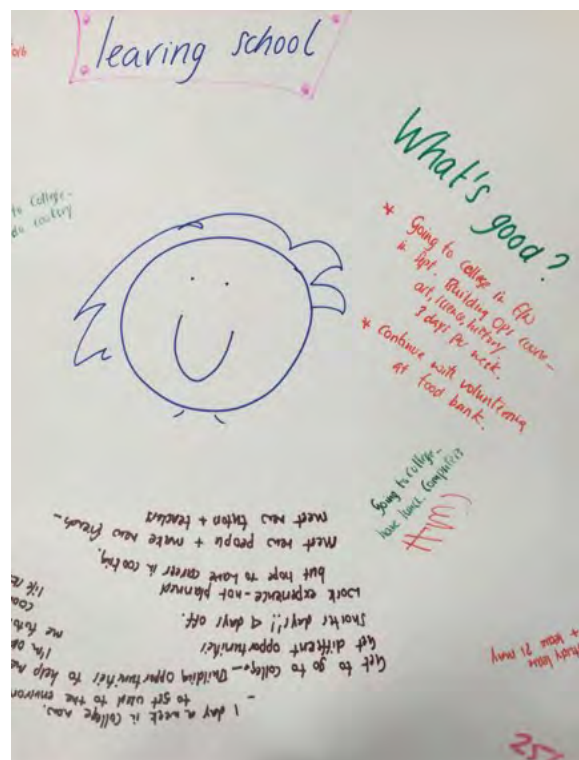 leaving school
to college -
do cookery
What's good?
* Going to college in
in Sept. Building Opps course -
art, science, history
3 days per week.
* Continue with volunteering
at food bank.
Going to college -
have lunch. computers
1 day a week in college now.
- to get used to the
Get to go to college - Building opportunities to help me
Get different opportunities
Shorter days!! 4 days off.
work experience - not planned
but hope to have career in cooking.
meet new people + make new friends -
meet new tutors + teachers
I'm
me
life
study leave
21 may
25